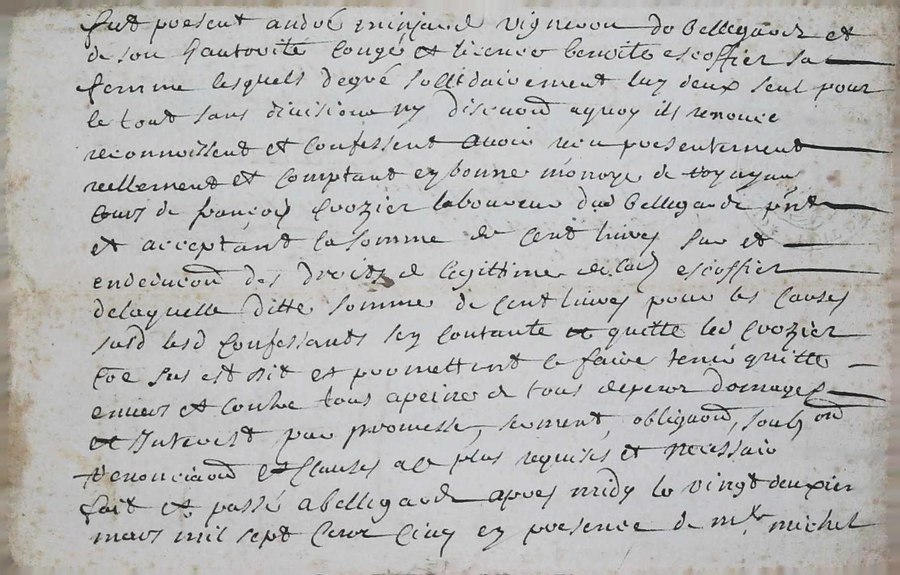 fut present andré minjard vigneron de bellegarde et
de son hautorité congé et licence benoite escoffier sa
femme lesquels de gré sollidairement luy deux seul pour
le tout sans division ny discution a quoy ils renonce
reconnoissent et confessent avoir reçu presentement
reellement et comptant en bonne monoye de
cours de françois crozier laboureur dud bellegarde pnt
et acceptant la somme de cent livres sur et
en deduction des droits de legittime de lad escoffier
de laquelle ditte somme de cent livres pour les causes
susd lesd confessants s'en contante et quitte led crozier
coe sus est dit et promettent le faire tenir quitte
envers et contre tous a peine de tous despens domages
et interest par promesse, serment, obligaon, soubs on
renonciaon et clauses a ce plus requises et necessair
fait et passé a bellegarde apres midy le vingt deuxiem
mars mil sept cent cinq en presence de mtre michel